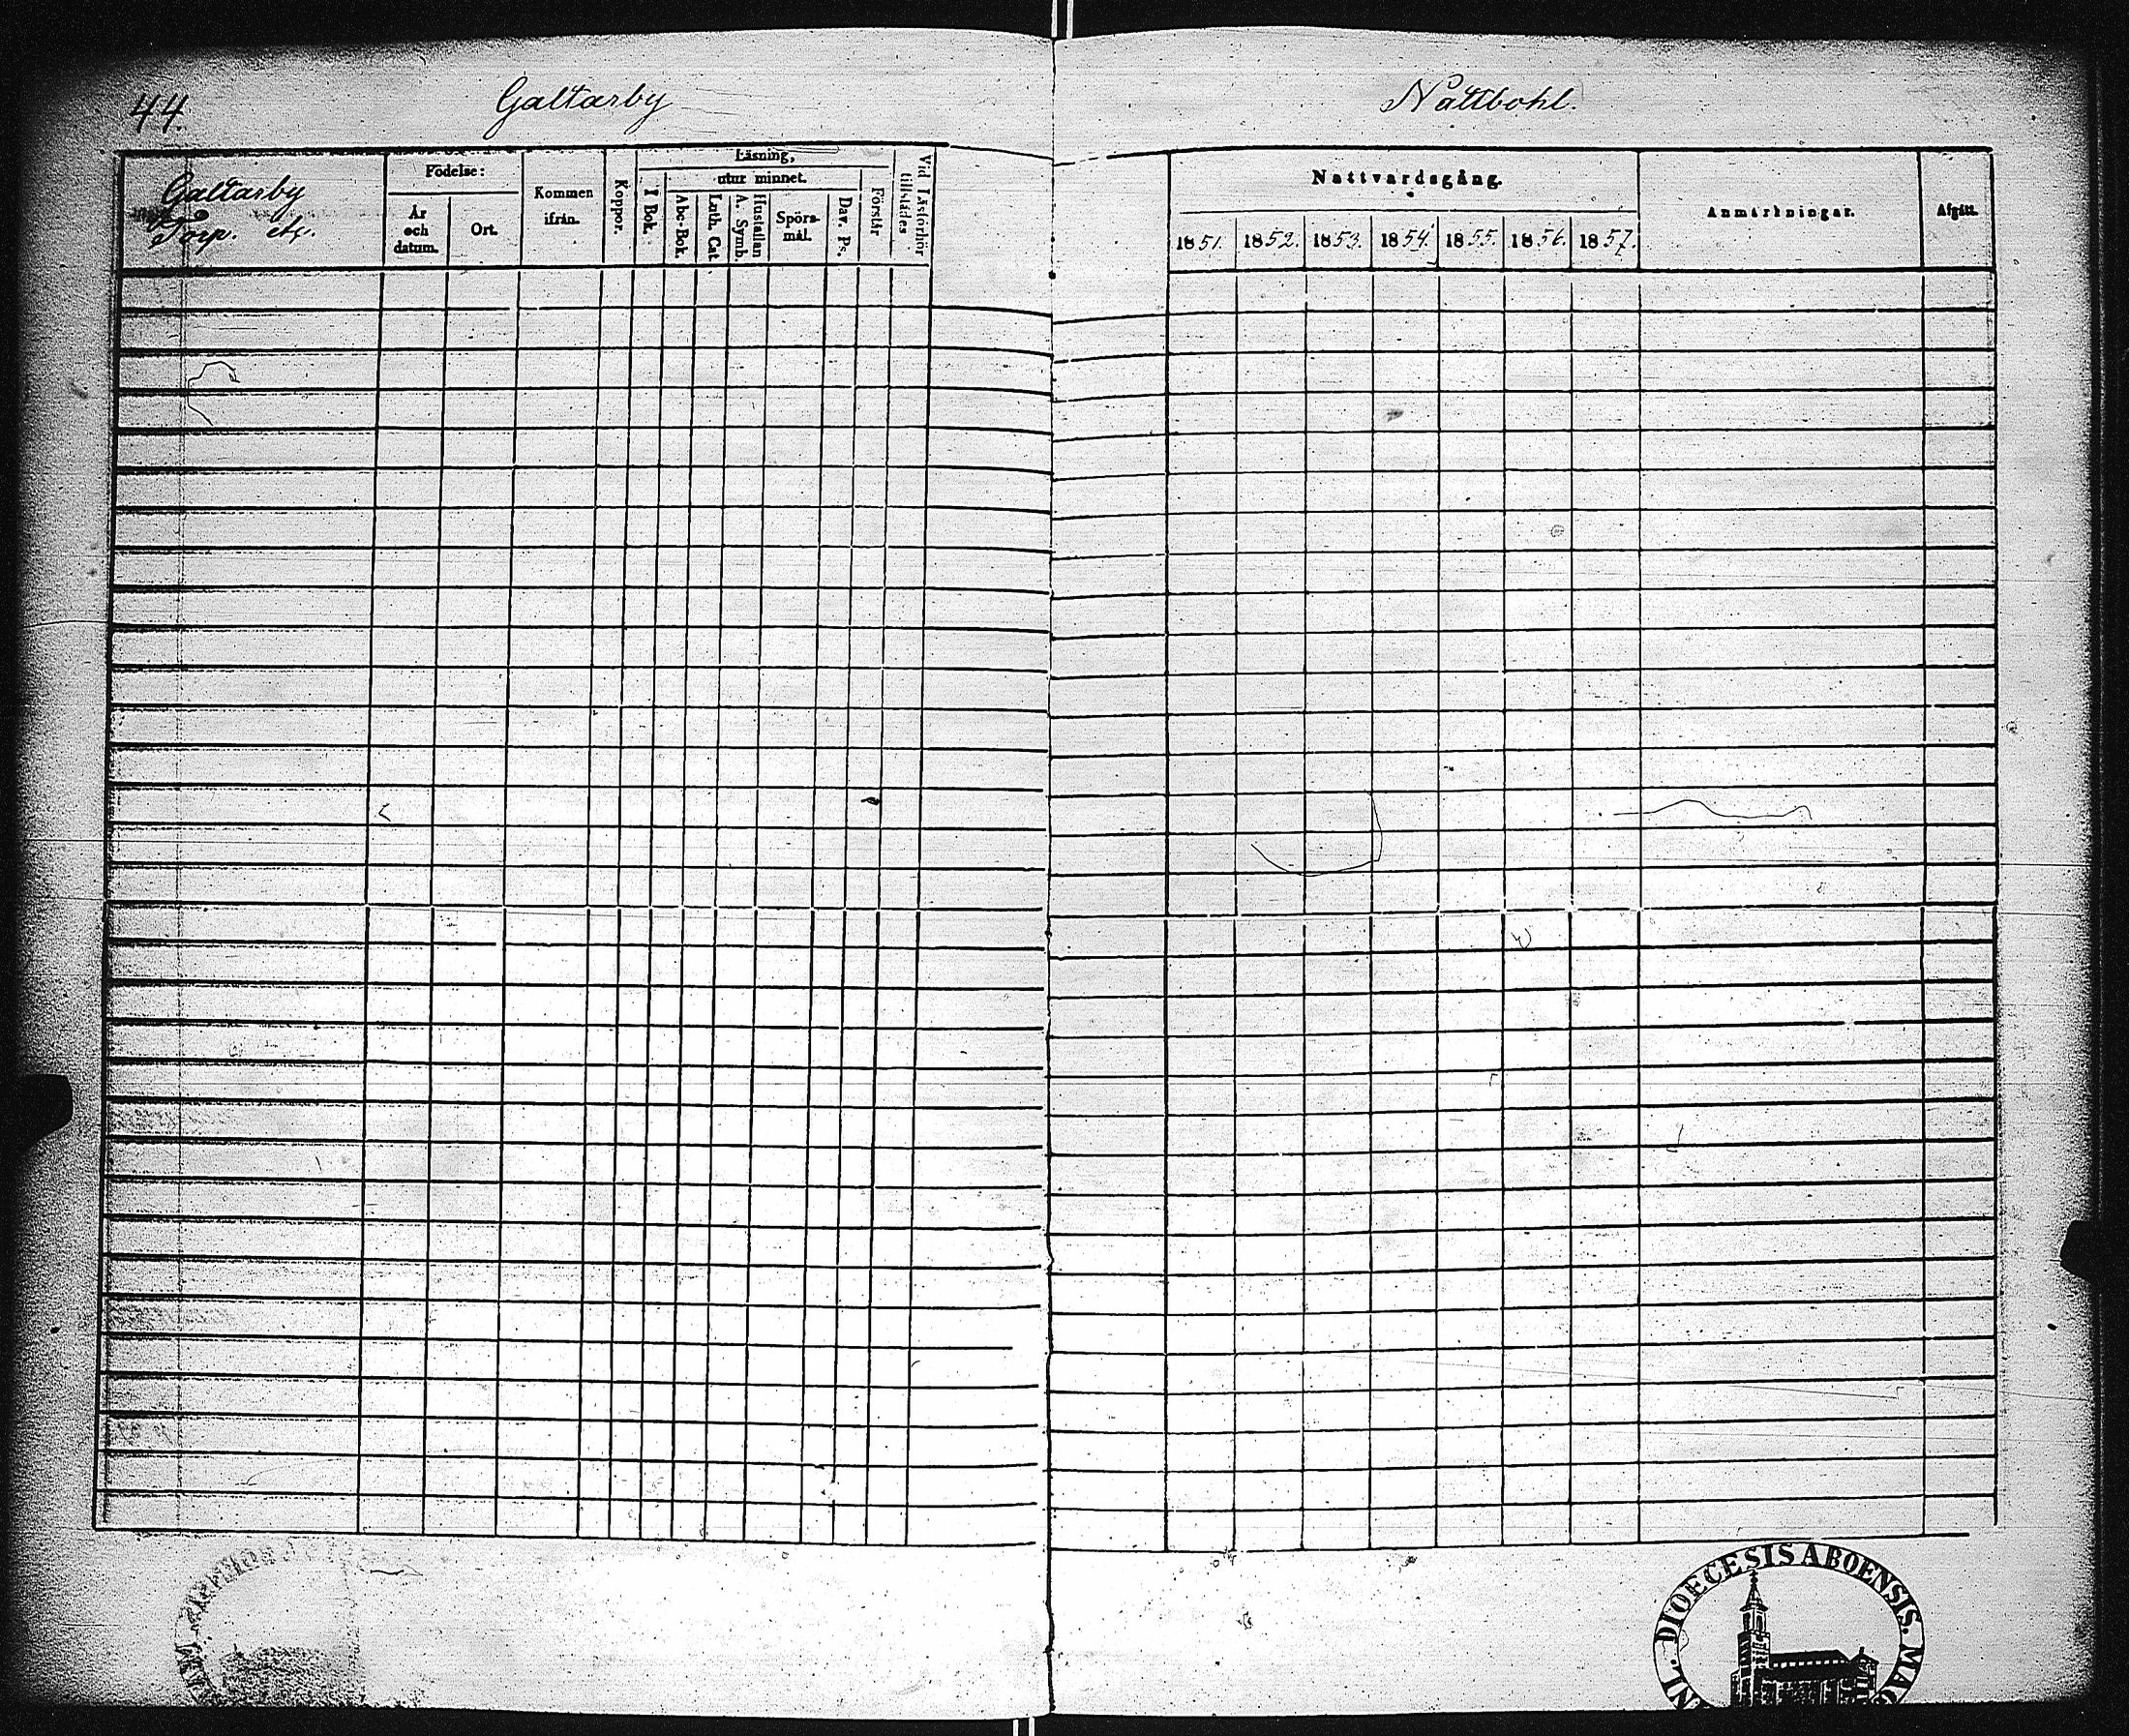 44.
Galtarby
Nattbohl.
Galtarby
Torp. etc.
Födelse:
År och datum.
Ort.
Kommen ifrån.
Koppor.
Läsning,
utur minnet.
I Bok.
Abc-Bok.
Luth. Cat.
Hustaflan A. Symb.
Spörs-mål.
Dav. Ps.
Förstår
Vid Läsförhör tillstädes
Nattvardsgång.
1851.
1852.
1853.
1854.
1855.
1856.
1857.
Anmärkningar.
Afgått.
DIOECESIS ABOENSIS. MAG